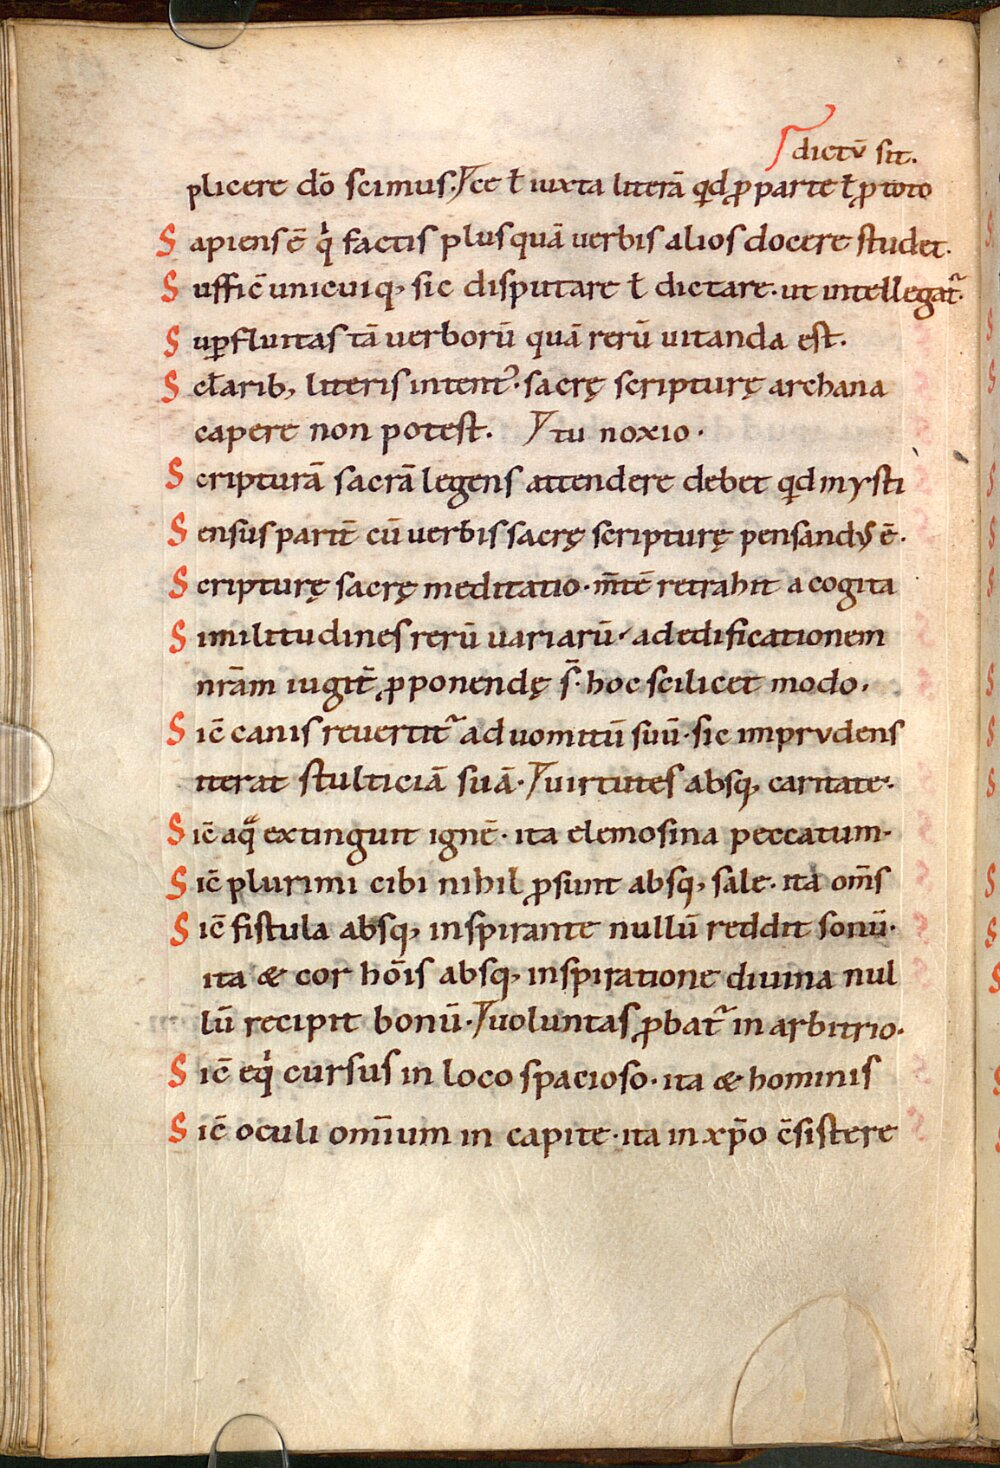 dictū sit.
plicere dō scimus. ce ł iuxta literā qđ ꝓ parte ł ꝓ toto
Sapiens ē qͥ factis plus quā uerbis alios docere studet.
Sufficē unicuiq; sic disputare ł dictare. ut intellegat᷑.
Suꝑfluitas tā uerborū quā rerū uitanda est.
Scłarib; literis intent᾿. sacrę scripturę archana
capere non potest. tu noxio.
Scripturā sacrā legens attendere debet qđ mysti
Sensus parit̄ cū uerbis sacrę scripturę pensandꝰ ē.
Scripturę sacrę meditatio. m̄tē retrahit a cogita
Similitudines rerū uariarū ad edificationem
nrām iugit̄ ꝓponendę s̄. hoc scilicet modo.
Sic̄ canis reuertit᷑ ad uomitū suū. sic imprudens
iterat stulticiā suā. uirtutes absq; caritate.
Sic̄ aqͣ extinguit ignē. ita elemosina peccatum.
Sic̄ plurimi cibi nihil ꝓsunt absq; sale. ita om̄s
Sic̄ fistula absq; inspirante nullū reddit sonū.
ita & cor hōis absq; inspiratione diuina nul
lū recipit bonū. uoluntas ꝓbat᷑ in arbitrio.
Sic̄ eqͥ cursus in loco spacioso. ita & hominis
Sic̄ oculi om̄ium in capite. ita in xp̄o c̄sistere